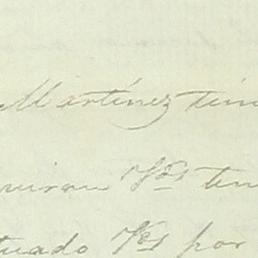 Martínez tien
quiran Vds ten
tuado Vds por